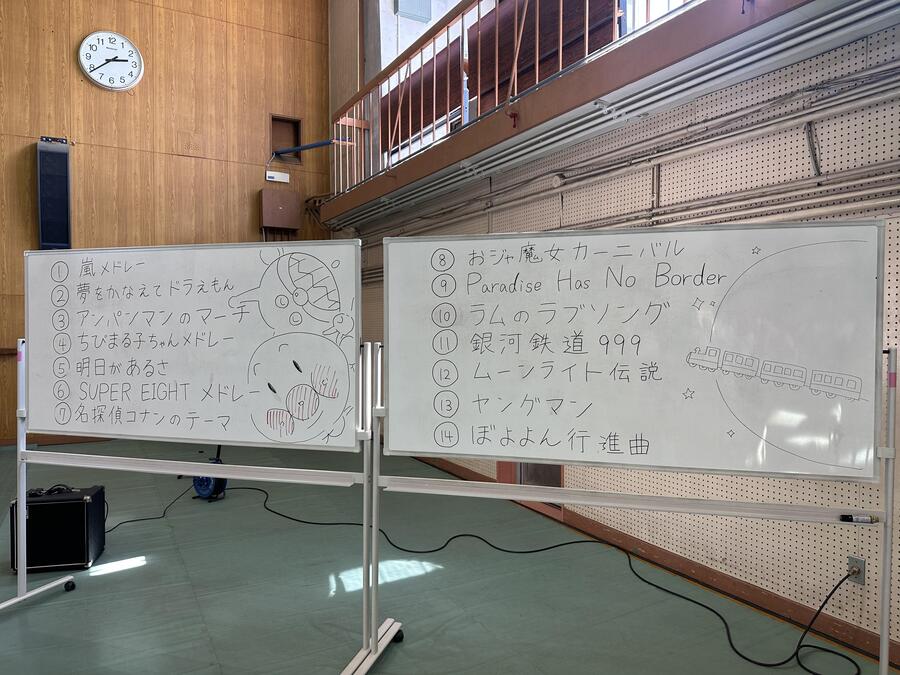 ① 嵐メドレー
② 夢をかなえてドラえもん
③ アンパンマンのマーチ
④ ちびまる子ちゃんメドレー
⑤ 明日があるさ
⑥ SUPER EIGHT メドレー
⑦ 名探偵コナンのテーマ
⑧ おジャ魔女カーニバル
⑨ Paradise Has No Border
⑩ ラムのラブソング
⑪ 銀河鉄道999
⑫ ムーンライト伝説
⑬ ヤングマン
⑭ ぼよよん行進曲
12
1
2
3
4
5
6
7
8
9
10
11